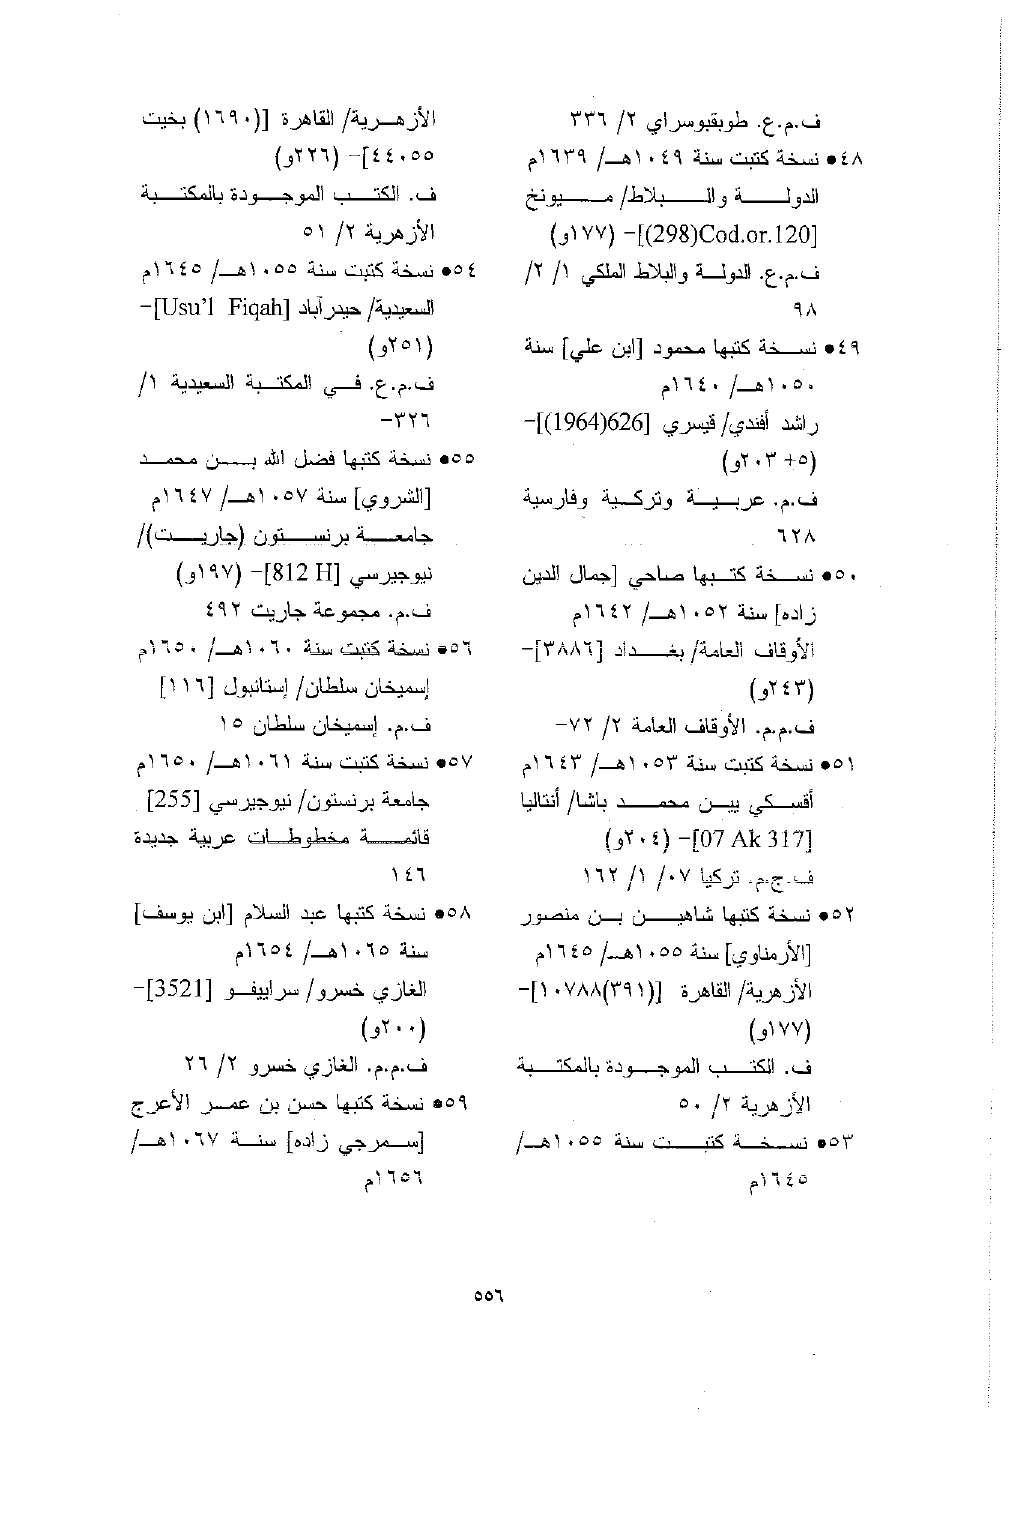 ف.م.ع. طوبقبوسراي ٢/ ٣٣٦
٤٨● نسخة كتبت سنة ١٠٤٩هـ/ ١٦٣٩م
الدولة والبلاط/ ميونخ
[Cod.or.120(298)]- (١٧٧و)
ف.م.ع. الدولة والبلاط الملكي ١/ ٢/
٩٨
٤٩● نسخة كتبها محمود [ابن علي] سنة
١٠٥٠هـ/ ١٦٤٠م
راشد أفندي/ قيسري [626(1964)]-
(٥+ ٢٠٣و)
ف.م. عربية وتركية وفارسية
٦٢٨
٥٠● نسخة كتبها صاحي [جمال الدين
زاده] سنة ١٠٥٢هـ/ ١٦٤٢م
الأوقاف العامة/ بغداد [٣٨٨٦]-
(٢٤٣و)
ف.م.م. الأوقاف العامة ٢/ ٧٢-
٥١● نسخة كتبت سنة ١٠٥٣هـ/ ١٦٤٣م
أقسكي يين محمد باشا/ أنتاليا
[07 Ak 317]- (٢٠٤و)
ف.ج.م. تركيا ٠٧/ ١/ ١٦٢
٥٢● نسخة كتبها شاهين بن منصور
[الأرمناوي] سنة ١٠٥٥هـ/ ١٦٤٥م
الأزهرية/ القاهرة [(٣٩١)١٠٧٨٨]-
(١٧٧و)
ف. الكتب الموجودة بالمكتبة
الأزهرية ٢/ ٥٠
٥٣● نسخة كتبت سنة ١٠٥٥هـ/
١٦٤٥م
الأزهرية/ القاهرة [(١٦٩٠) بخيت
٤٤٠٥٥]- (٢٢٦و)
ف. الكتب الموجودة بالمكتبة
الأزهرية ٢/ ٥١
٥٤● نسخة كتبت سنة ١٠٥٥هـ/ ١٦٤٥م
السعيدية/ حيدرآباد [Usu'l Fiqah]-
(٢٥١و)
ف.م.ع. في المكتبة السعيدية ١/
٣٢٦-
٥٥● نسخة كتبها فضل الله بن محمد
[الشروي] سنة ١٠٥٧هـ/ ١٦٤٧م
جامعة برنستون (جاريت)/
نيوجيرسي [812 H]- (١٩٧و)
ف.م. مجموعة جاريت ٤٩٢
٥٦● نسخة كتبت سنة ١٠٦٠هـ/ ١٦٥٠م
إسميخان سلطان/ إستانبول [١١٦]
ف.م. إسميخان سلطان ١٥
٥٧● نسخة كتبت سنة ١٠٦١هـ/ ١٦٥٠م
جامعة برنستون/ نيوجيرسي [255]
قائمة مخطوطات عربية جديدة
١٤٦
٥٨● نسخة كتبها عبد السلام [ابن يوسف]
سنة ١٠٦٥هـ/ ١٦٥٤م
الغازي خسرو/ سراييفو [3521]-
(٢٠٠و)
ف.م.م. الغازي خسرو ٢/ ٢٦
٥٩● نسخة كتبها حسن بن عمر الأعرج
[سمرجي زاده] سنة ١٠٦٧هـ/
١٦٥٦م
٥٥٦